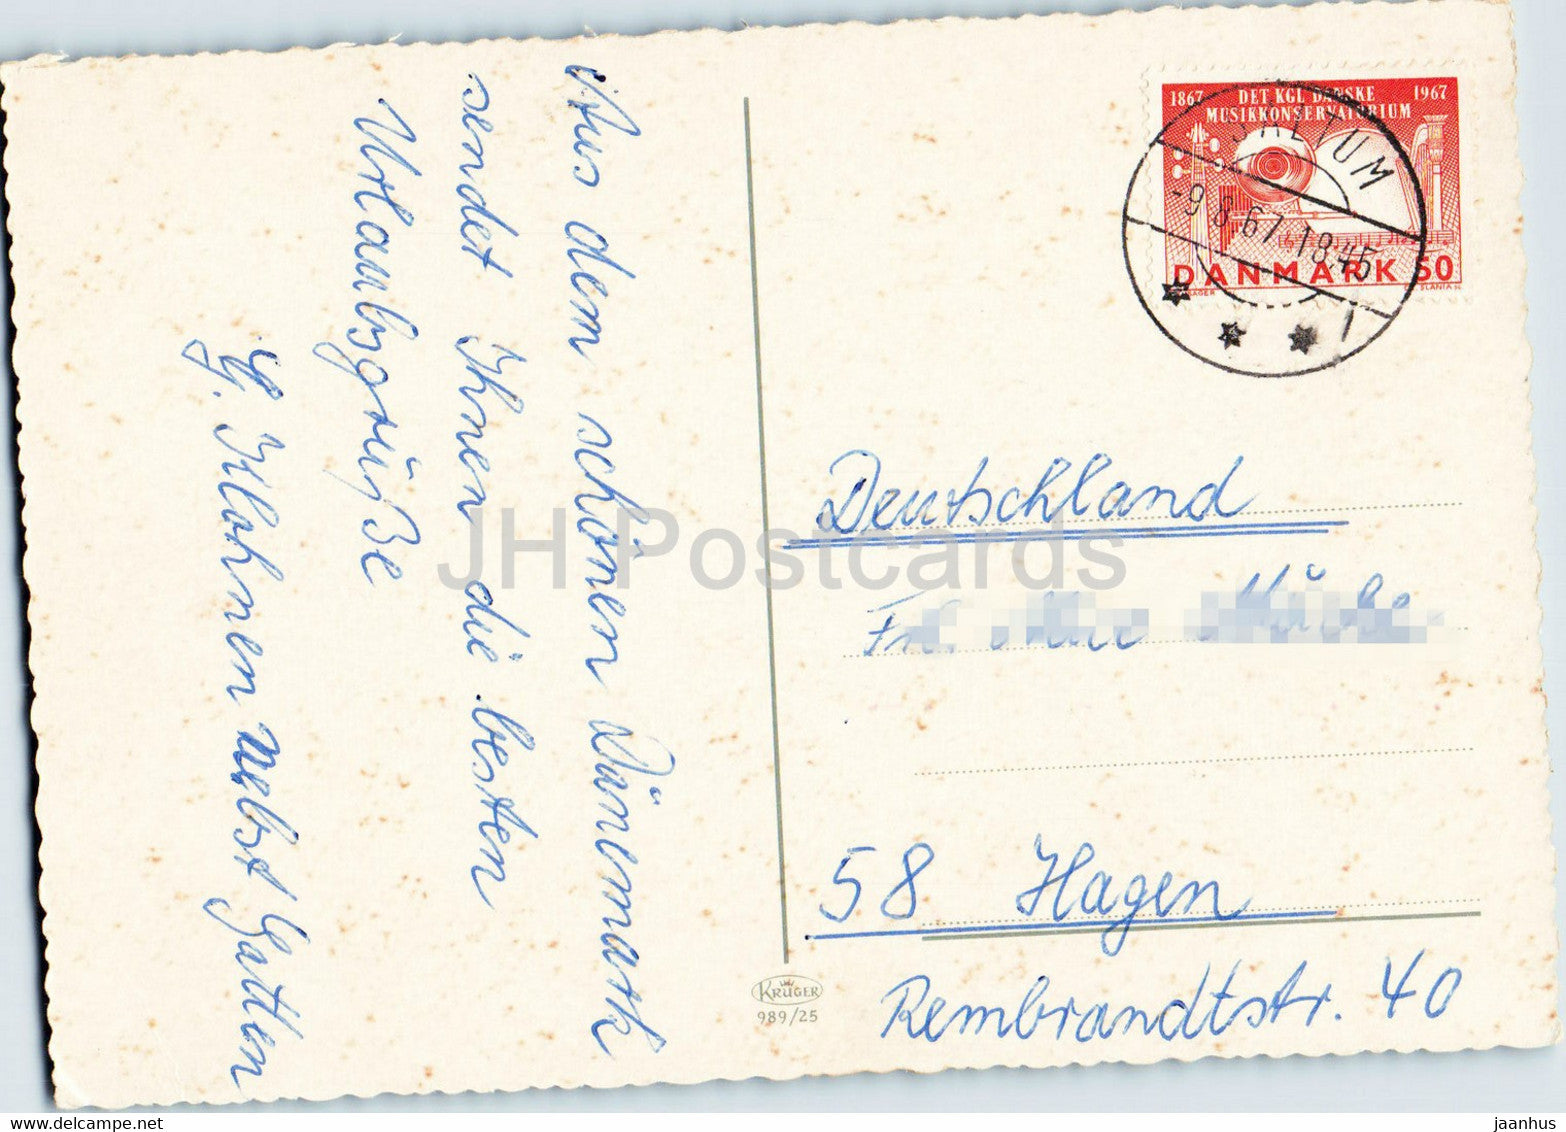 Aus dem schönen Dänemark
sendet Ihnen die besten
Urlaubsgrüße
G. Klohnen nebst Gatten
1867 DET KGL. DANSKE 1967
MUSIKKONSERVATORIUM
DANMARK 50
SLANIA
SALTUM
-9.8.67.18.45
Deutschland
58 Hagen
Rembrandtstr. 40
KRÜGER
989/25
JH Postcards
jaanhus